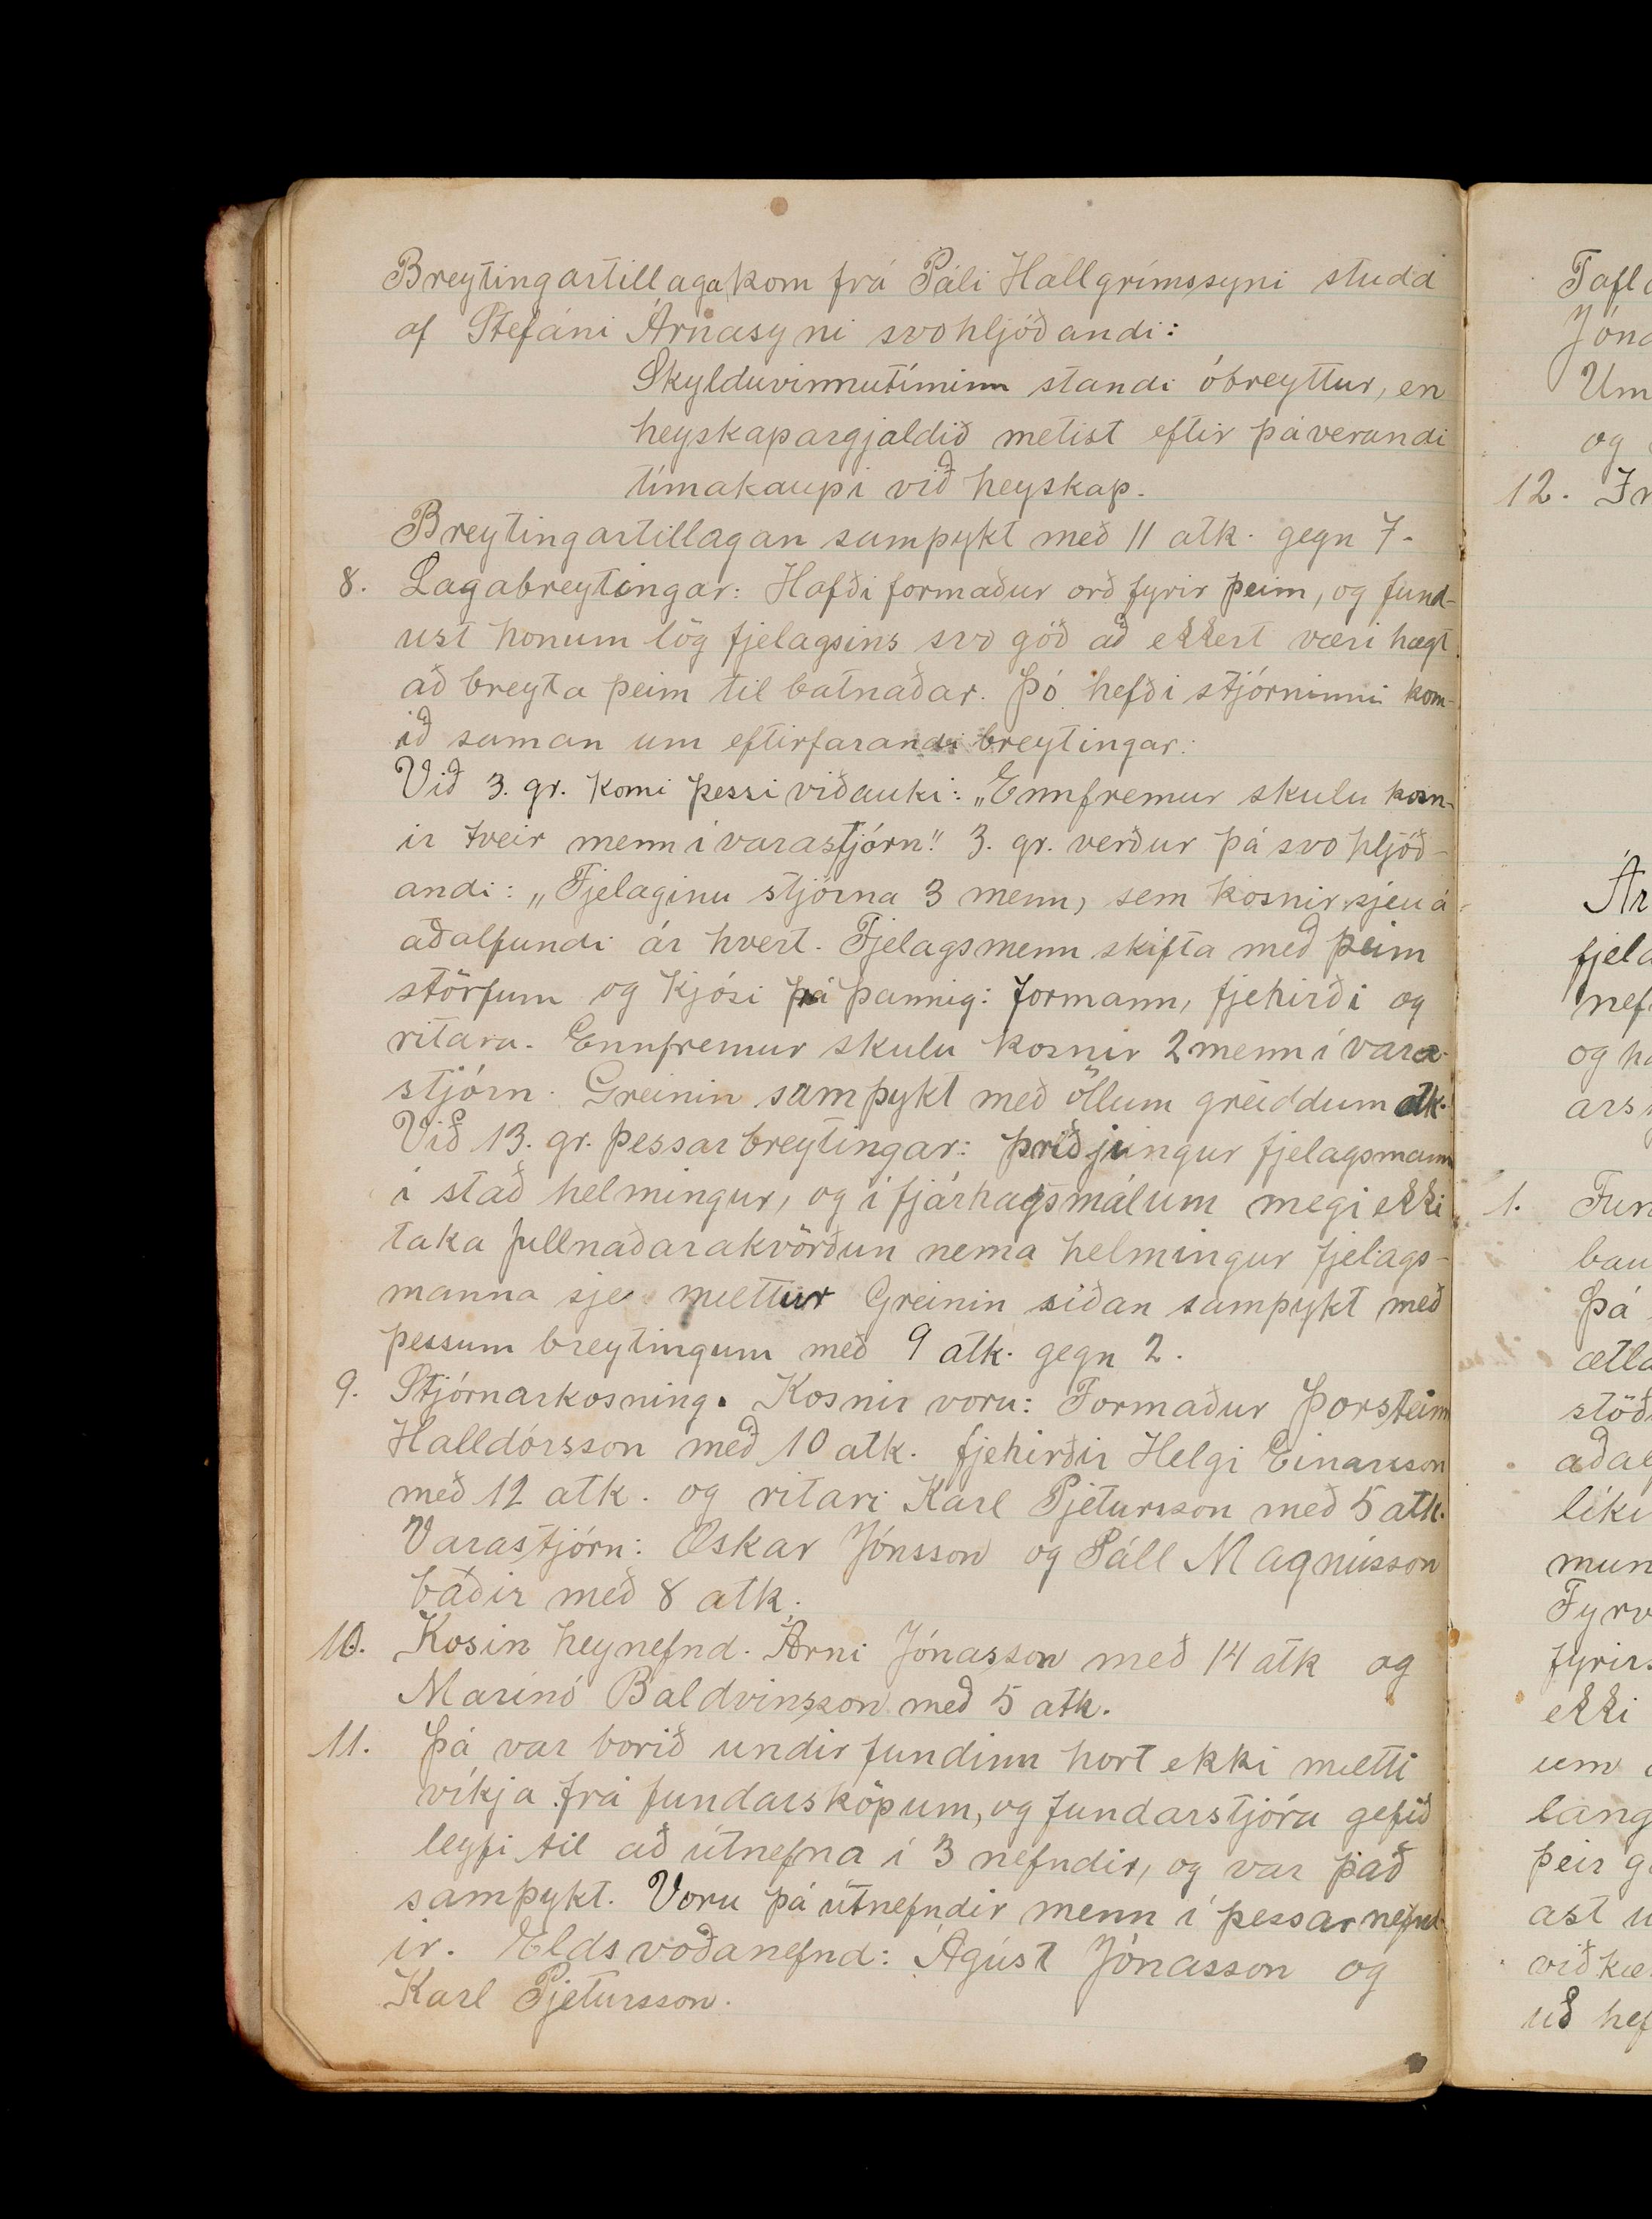 Breytingartillaga kom frá Páli Hallgrímssyni studd
af Stefáni Árnasyni svohljóðandi:
Skylduvinnutíminn standi óbreyttur, en
heyskapargjaldið metist eftir þáverandi
tímakaupi við heyskap.
Breytingartillagan samþykt með 11 atk. gegn 7.
8. Lagabreytingar: Hafði formaður orð fyrir þeim, og fund-
ust honum lög fjelagsins svo góð að ekkert væri hægt
að breyta þeim til batnaðar. Þó hefði stjórninni kom-
ið saman um eftirfarandi breytingar:
Við 3. gr. komi þessi viðauki: „Ennfremur skulu kosn-
ir tveir menn í varastjórn." 3. gr. verður þá svo hljóð-
andi: „Fjelaginu stjórna 3 menn, sem kosnir sjeu á
aðalfundi ár hvert. Fjelagsmenn skifta með þeim
störfum og kjósi þá þannig: formann, fjehirði og
ritara. Ennfremur skulu kosnir 2 menn í vara-
stjórn. Greinin samþykt með öllum greiddum atk.
Við 13. gr. þessar breytingar: þriðjungur fjelagsmann
í stað helmingur, og í fjárhagsmálum megi ekki
taka fullnaðarakvörðun nema helmingur fjelags-
manna sje mættur Greinin síðan samþykt með
þessum breytingum með 9 atk. gegn 2.
9. Stjórnarkosning. Kosnir voru: Formaður Þorsteinn
Halldórsson með 10 atk. fjehirðir Helgi Einarsson
með 12 atk. og ritari Karl Pjetursson með 5 atk.
Varastjórn: Oskar Jónsson og Páll Magnússon
báðir með 8 atk.
10. Kosin heynefnd. Árni Jónasson með 14 atk og
Marinó Baldvinsson með 5 atk.
11. Þá var borið undir fundinn hort ekki mætti
víkja frá fundarsköpum, og fundarstjóra gefið
leyfi til að útnefna í 3 nefndir, og var það
samþykt. Voru þá útnefndir menn í þessar nefnd-
ir. Eldsvoðanefnd: Ágúst Jónasson og
Karl Pjetursson.
Um
og
12.
1.
Þá
líki
ekki
um
þeir
ast